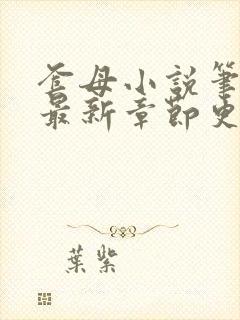 爸母小説筆
最新章節史
葉紫